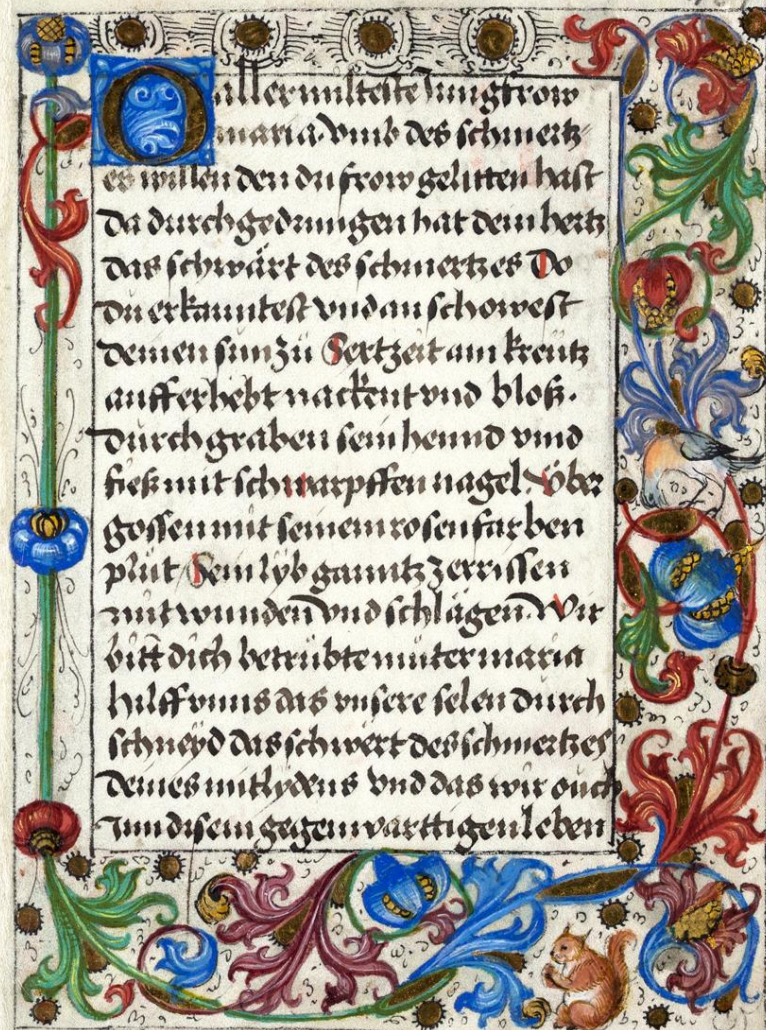 O aller milteste Jungfrow
maria. vmb des schmertz-
es willen den du frow gelitten hast
da durchgedrungen hat dein hertz
das schwärt des schmertzes Do
du erkanntest vnd an schowest
deinen sun zü Sextzeit am kreütz
aufferhebt nackent vnd bloß.
durchgraben sein hennd vnnd
fieß mit scharpffen nagel. Vber
gossen mit seinem rosenfarben
plüt Sein lyb ganntz zerrissen
mit wunden vnd schlägen. Wir
bitt dich betrübte müter maria
hilff vnns das vnsere selen durch
schneyd das schwert des schmertzes
deines mitlydens vnd das wir ouch
inn disem gegenwarttigen leben